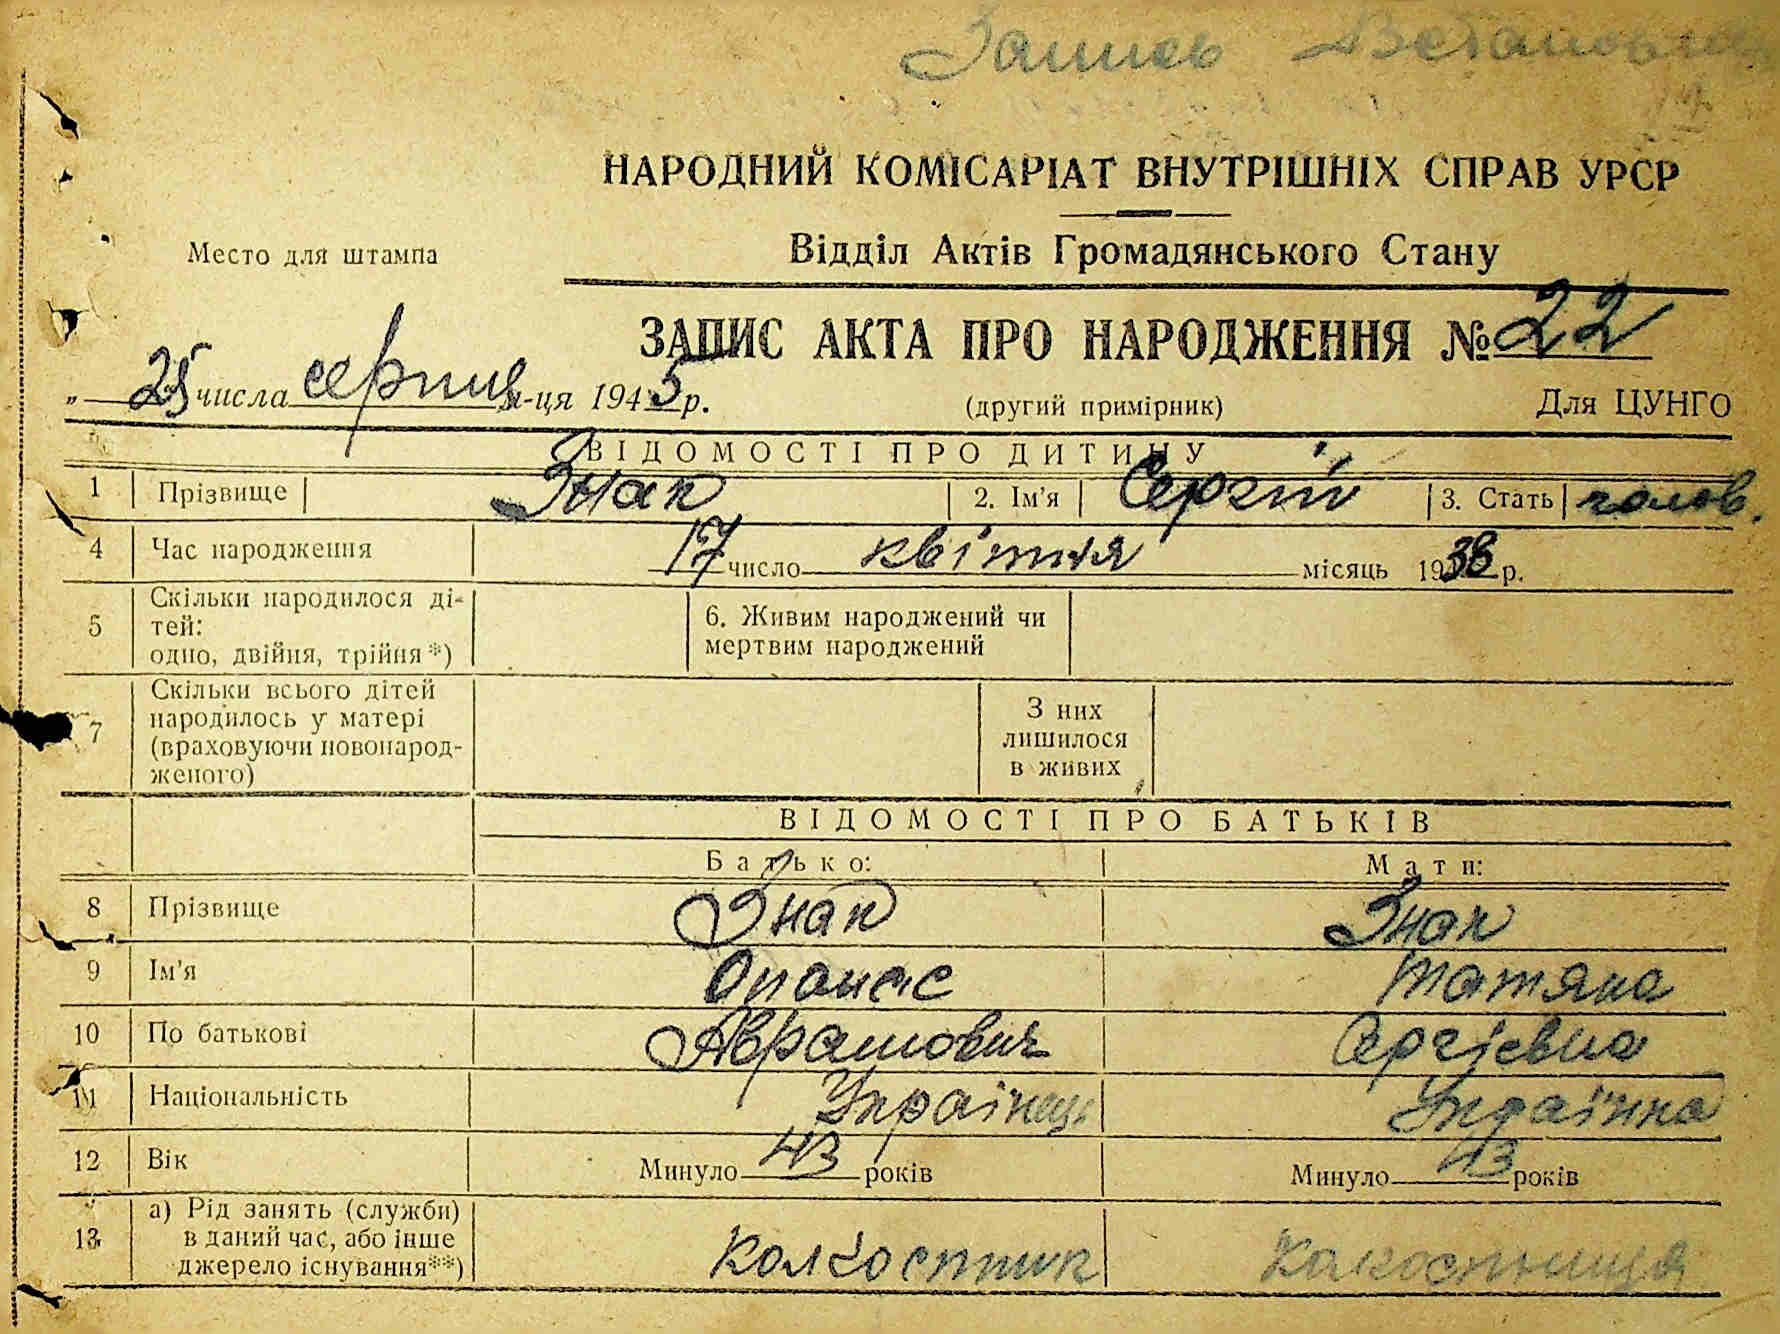 Запись
НАРОДНИЙ КОМІСАРІАТ ВНУТРІШНІХ СПРАВ УРСР
Место для штампа
Відділ Актів Громадянського Стану
ЗАПИС АКТА ПРО НАРОДЖЕННЯ № 22
„ 25 числа серпня м-ця 1945 р. (другий примірник) Для ЦУНГО
ВІДОМОСТІ ПРО ДИТИНУ
1 Прізвище Знак 2. Ім'я Сергій 3. Стать чолов.
4 Час народження 17 число квітня місяць 1938 р.
5 Скільки народилося ді-
тей:
одно, двійня, трійня*)
6. Живим народжений чи
мертвим народжений
7 Скільки всього дітей
народилось у матері
(враховуючи новонарод-
женого)
З них
лишилося
в живих
ВІДОМОСТІ ПРО БАТЬКІВ
Батько: Мати:
8 Прізвище Знак Знак
9 Ім'я Опанас Татяна
10 По батькові Аврамович Сергієвна
11 Національність Українець Українка
12 Вік Минуло 43 років Минуло 43 років
13 а) Рід занять (служби)
в даний час, або інше
джерело існування**)
Колхостник Колхостниця